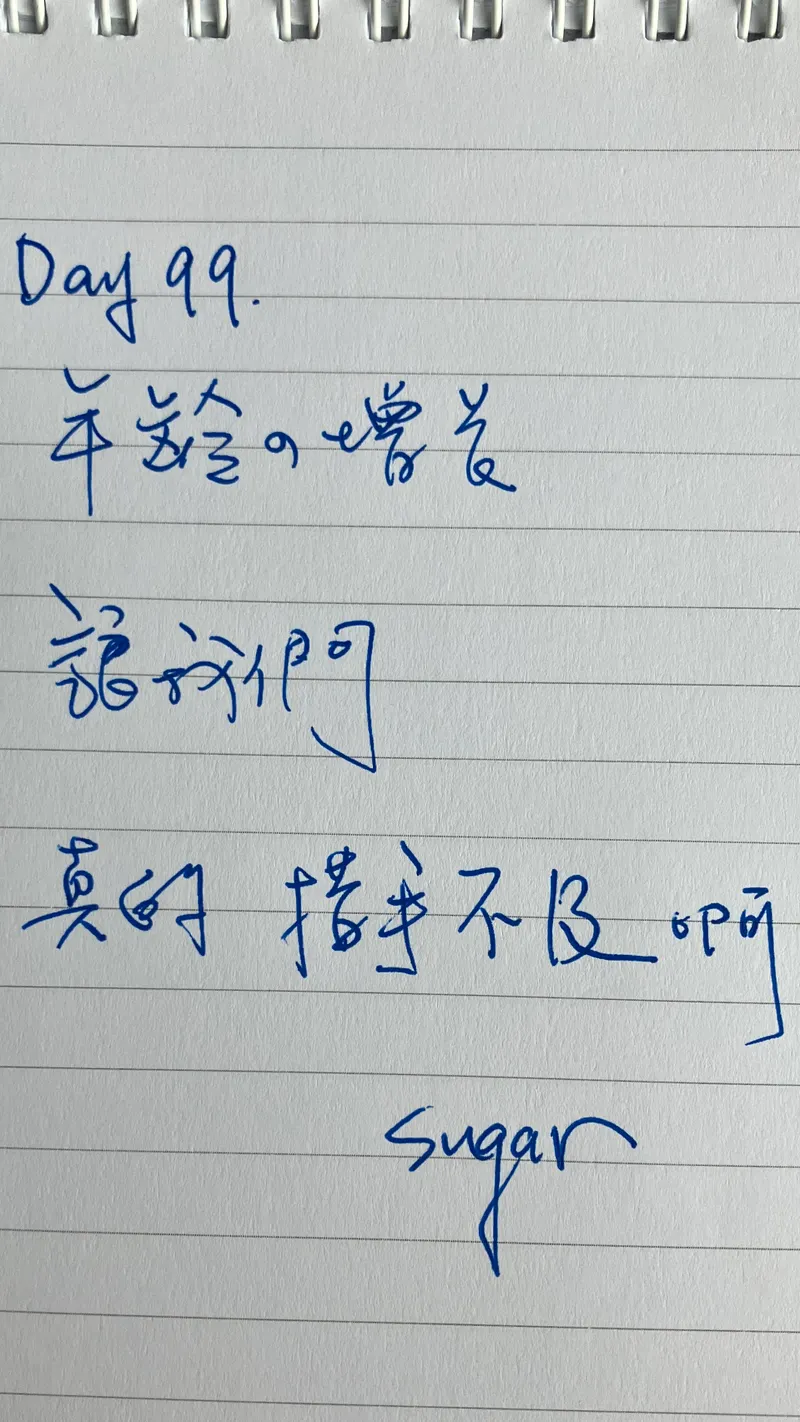 Day 99.
年齡の增長
讓我們
真的 措手不及 啊
sugar